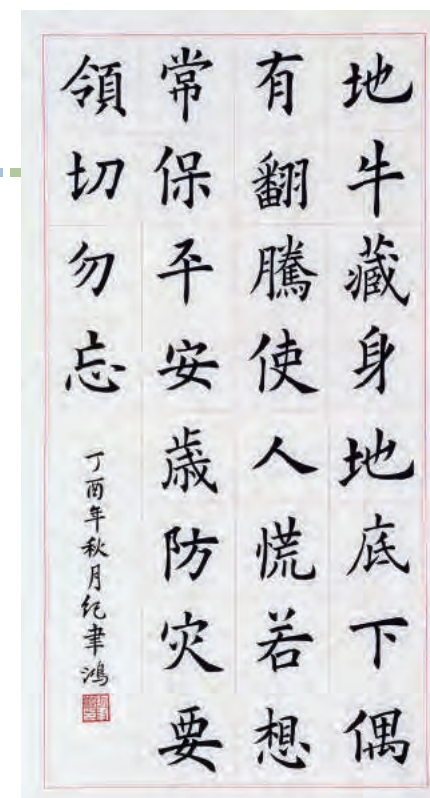 地牛藏身地底下偶
有翻騰使人慌若想
常保平安歲防灾要
領切勿忘
丁酉年秋月紀聿鴻